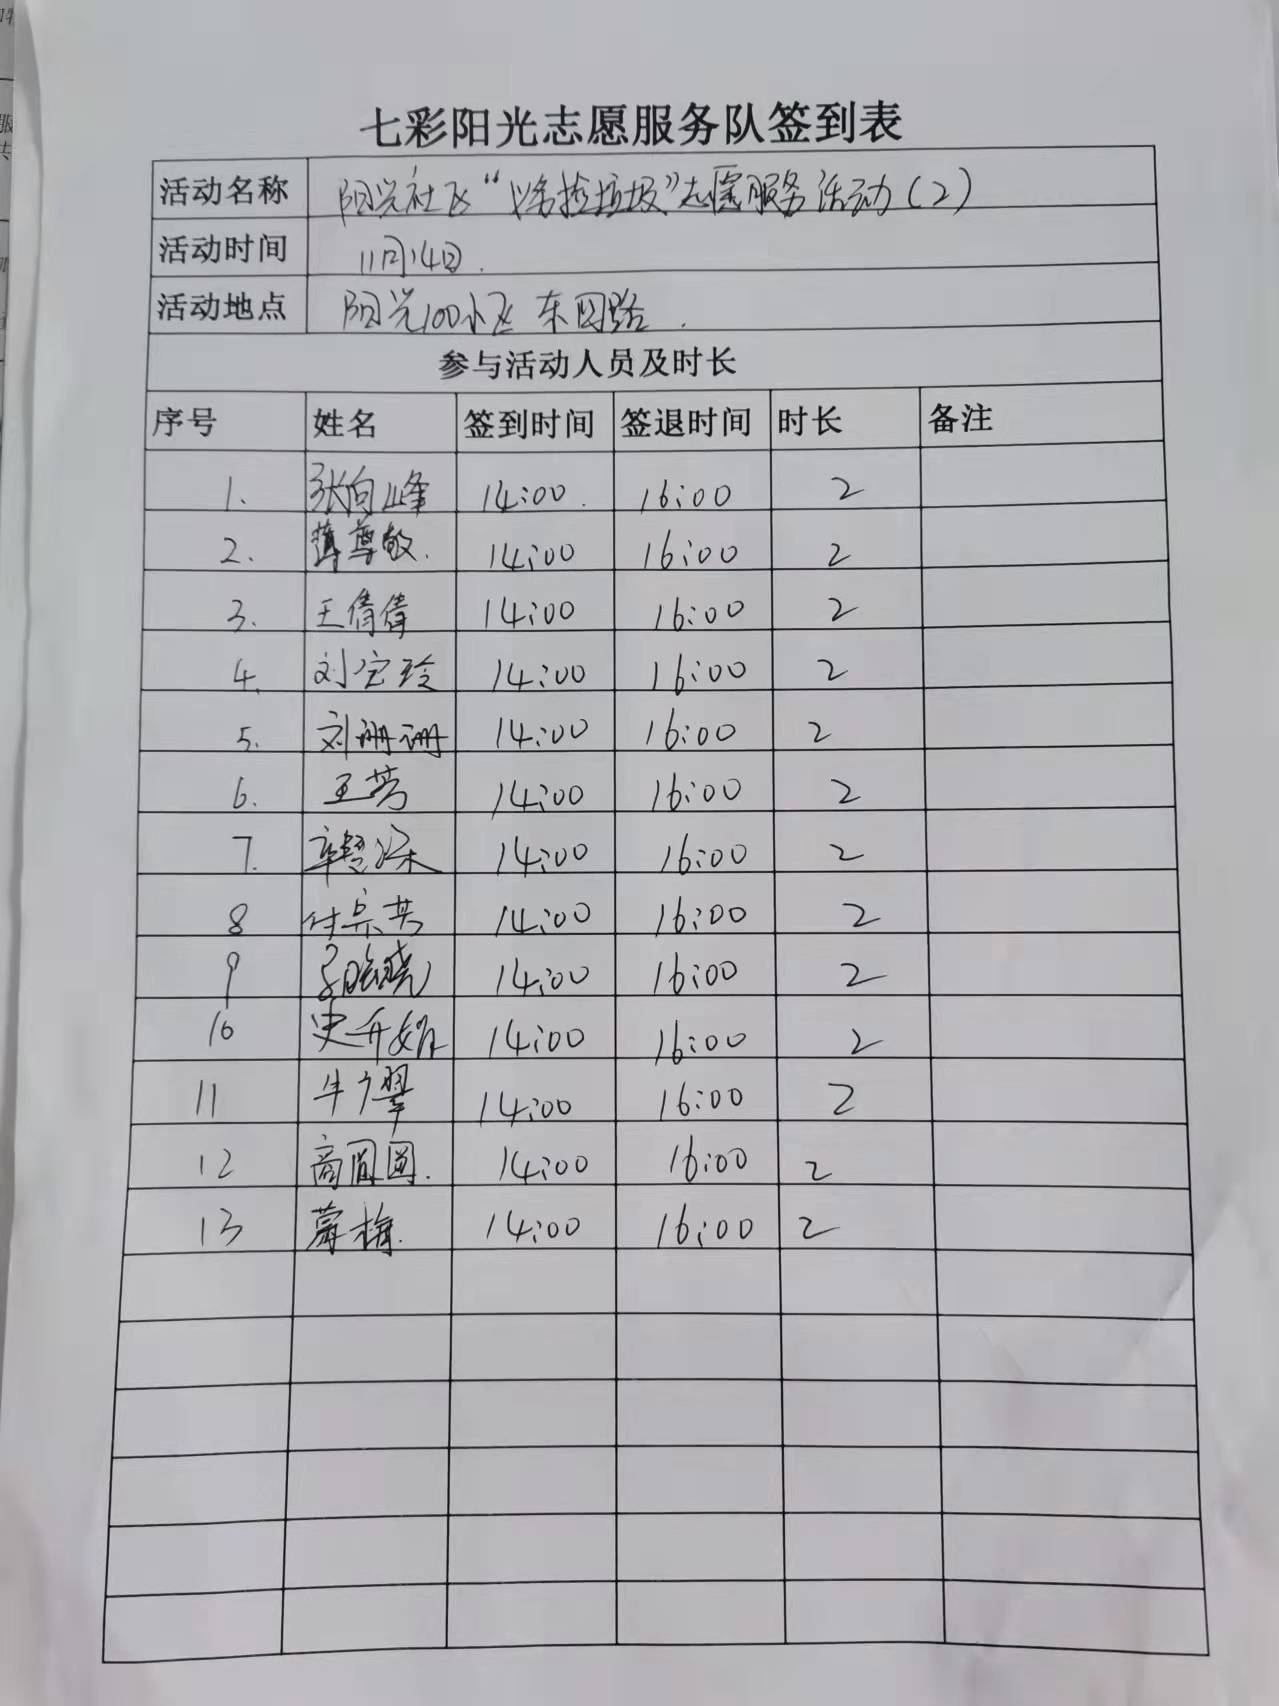 七彩阳光志愿服务队签到表
活动名称 阳光社区“义务捡垃圾”志愿服务活动(2)
活动时间 11月14日.
活动地点 阳光100小区 东围路.
参与活动人员及时长
序号 姓名 签到时间 签退时间 时长 备注
1. 张向峰 14:00. 16:00 2
2. 薄尊敬. 14:00 16:00 2
3. 王倩倩 14:00 16:00 2
4. 刘宝玲 14:00 16:00 2
5. 刘珊珊 14:00 16:00 2
6. 王芳 14:00 16:00 2
7. 14:00 16:00 2
8 14:00 16:00 2
9 14:00 16:00 2
10 史丹娟 14:00 16:00 2
11 牛翠 14:00 16:00 2
12 商圆圆. 14:00 16:00 2
13 梅. 14:00 16:00 2